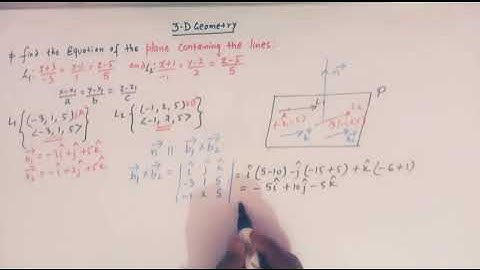 3-D Geometry
* find the Equation of the plane containing the lines.
L₁: (x+3)/-3 = (y-1)/1 = (z-5)/5 and L₂: (x+1)/-1 = (y-2)/2 = (z-5)/5
(x-x₁)/a = (y-y₁)/b = (z-z₁)/c
L₁ { (-3, 1, 5) <-3, 1, 5>
L₂ { (-1, 2, 5) <-1, 2, 5>
b₁ = -3i + j + 5k
b₂ = -i + 2j + 5k
n || b₁ × b₂
b₁ × b₂ = | i j k |
| -3 1 5 |
| -1 2 5 |
= i(5-10) - j(-15+5) + k(-6+1)
= -5i + 10j - 5k
n
P